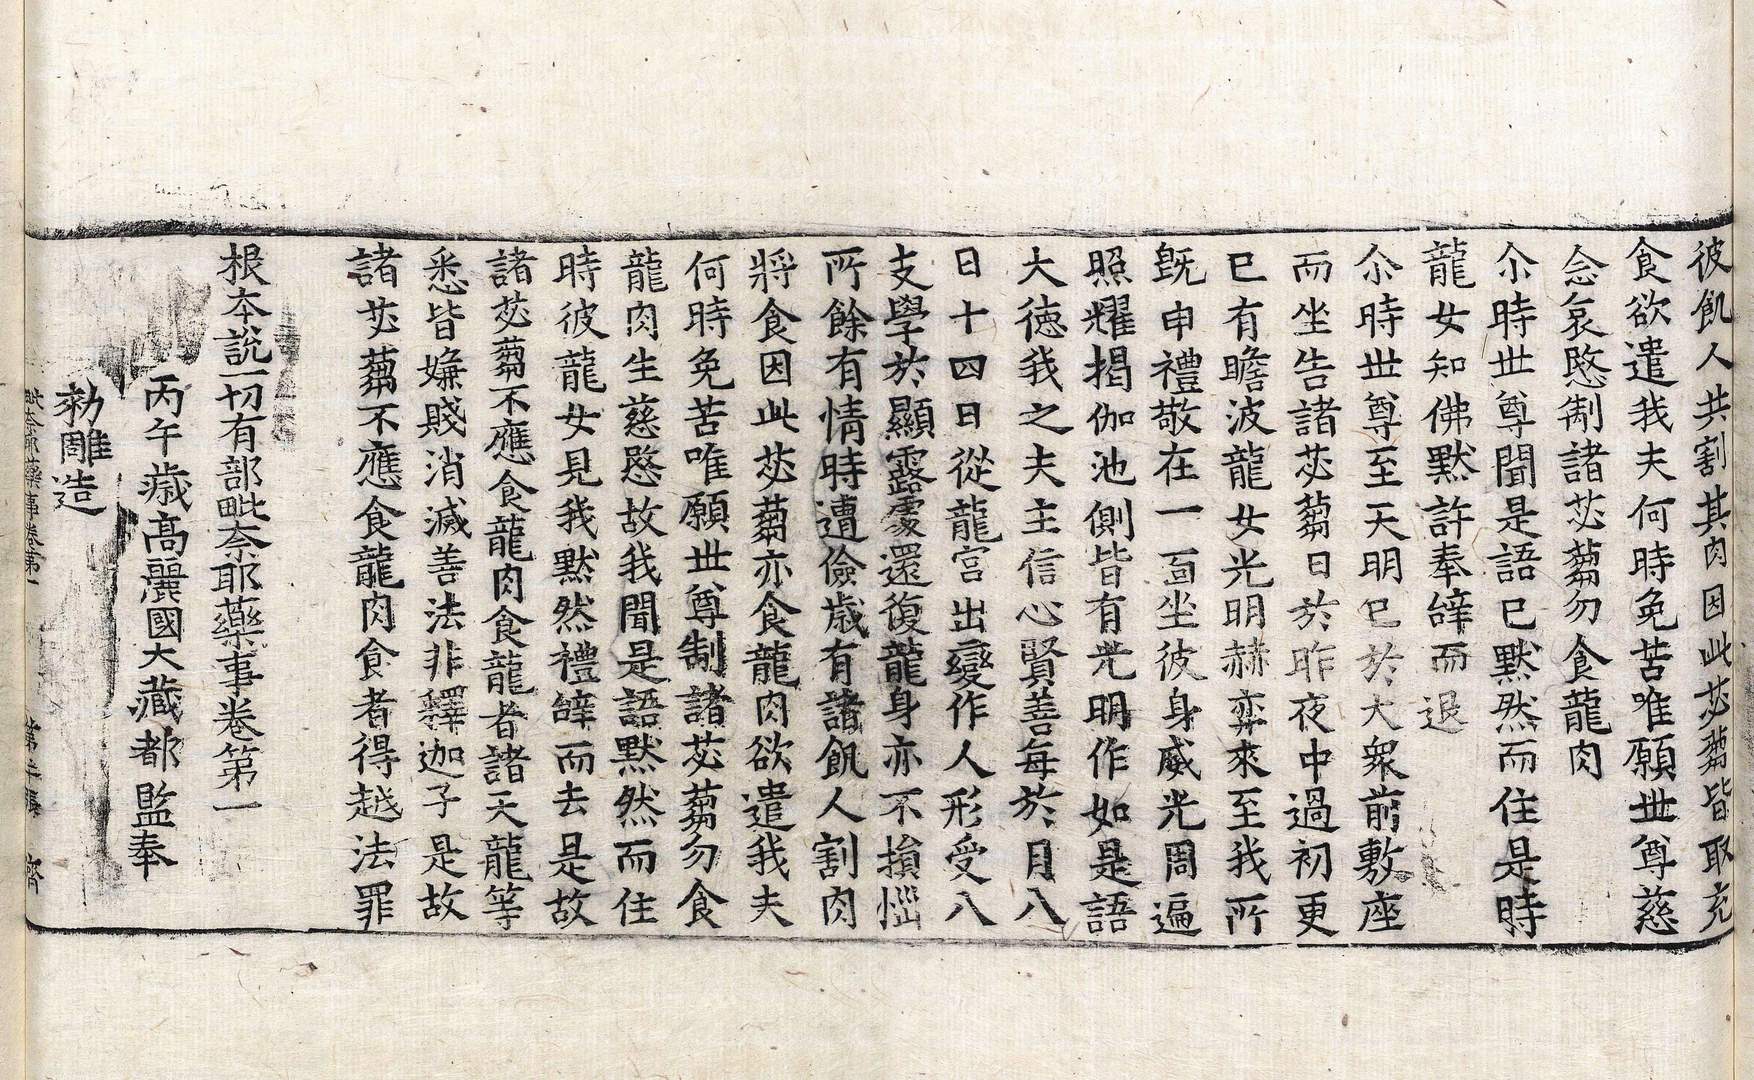 彼飢人共割其肉因此苾蒭皆取充
食欲遣我夫何時免苦唯願世尊慈
念哀愍制諸苾蒭勿食龍肉
尒時世尊聞是語已默然而住是時
龍女知佛默許奉辝而退
尒時世尊至天明已於大衆前敷座
而坐告諸苾蒭曰於昨夜中過初更
已有瞻波龍女光明赫弈來至我所
旣申禮敬在一面坐彼身威光周遍
照耀揭伽池側皆有光明作如是語
大徳我之夫主信心賢善每於月八
日十四日從龍宮出變作人形受八
支學於顯露處還復龍身亦不損惱
所餘有情時遭儉歳有諸飢人割肉
將食因此苾蒭亦食龍肉欲遣我夫
何時免苦唯願世尊制諸苾蒭勿食
龍肉生慈愍故我聞是語默然而住
時彼龍女見我默然禮辝而去是故
諸苾蒭不應食龍肉食龍者諸天龍等
悉皆嫌賤消滅善法非釋迦子是故
諸苾蒭不應食龍肉食者得越法罪
根本說一切有部毗奈耶藥事卷第一
丙午歳高麗國大藏都監奉
勑雕造
毗奈耶藥事卷第一 第 張 濟